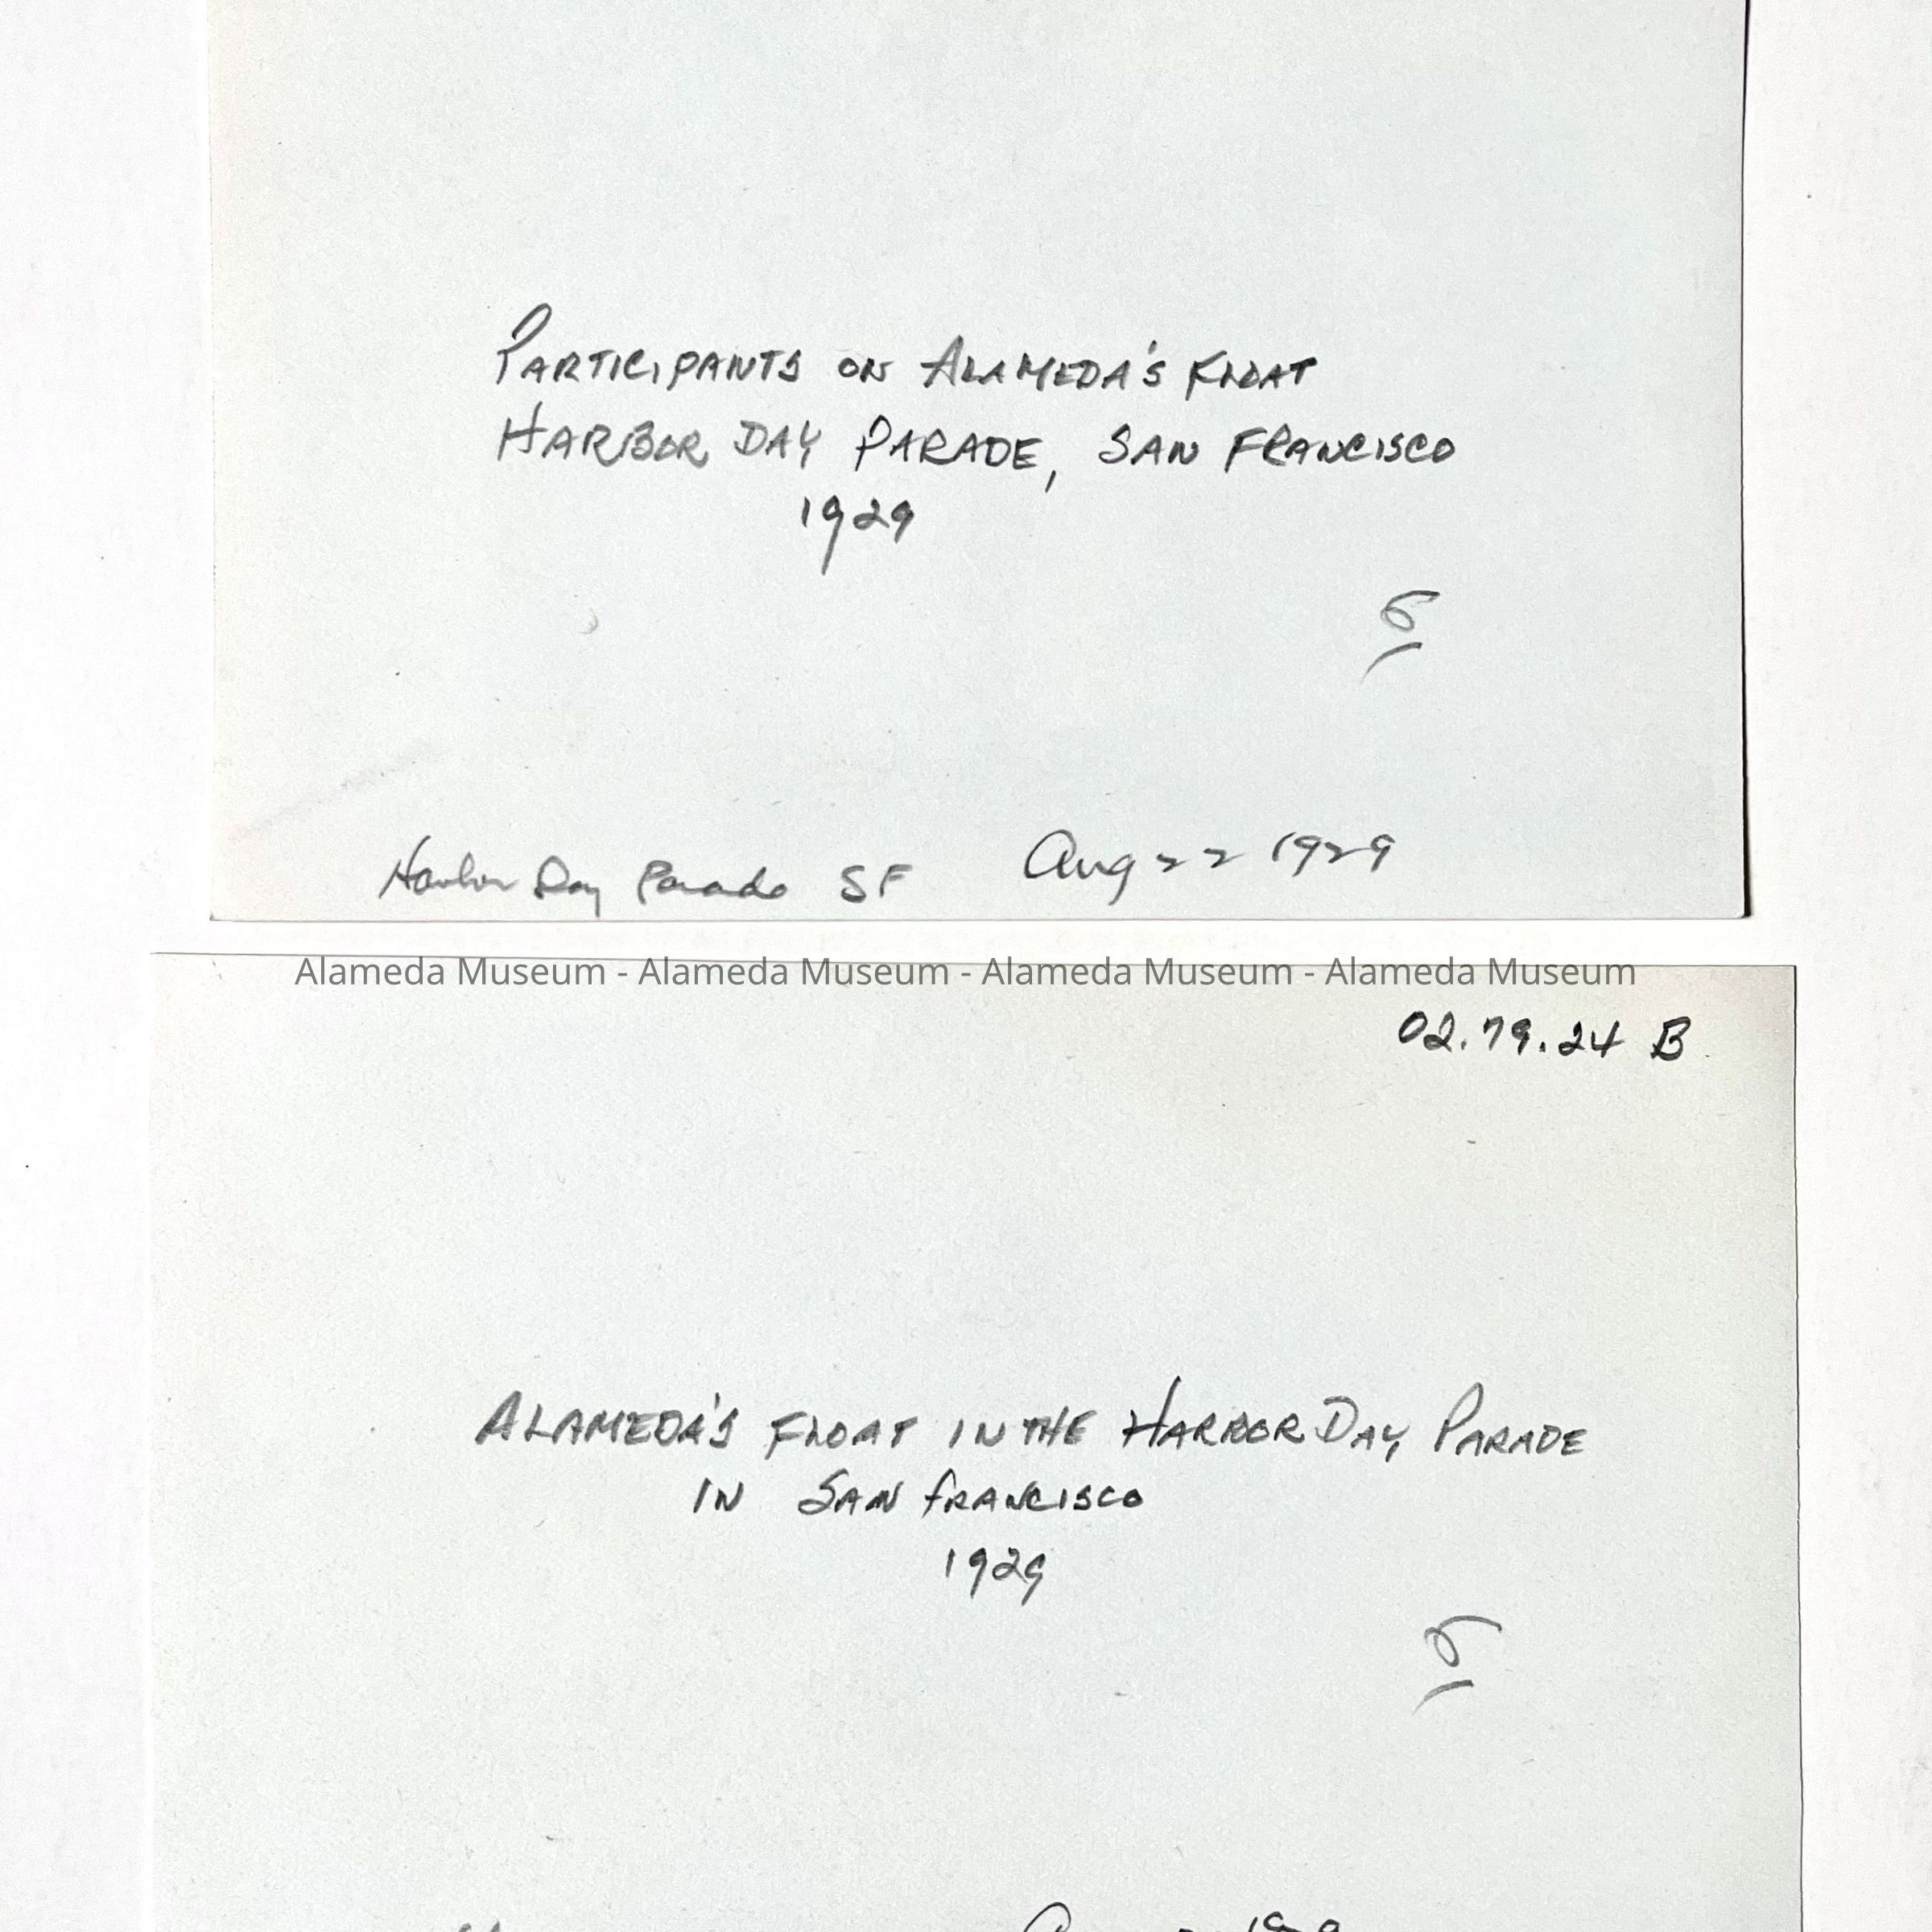 PARTICIPANTS ON ALAMEDA'S FLOAT
HARBOR DAY PARADE, SAN FRANCISCO
1929
6
Harbor Day Parade SF Aug 22 1929
Alameda Museum - Alameda Museum - Alameda Museum - Alameda Museum
02.79.24 B
ALAMEDA'S FLOAT IN THE HARBOR DAY PARADE
IN SAN FRANCISCO
1929